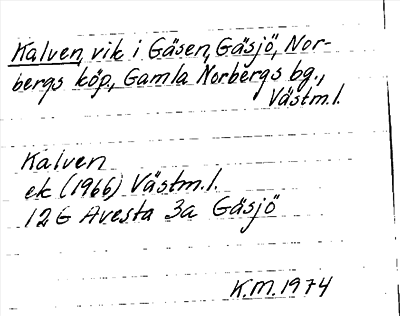 Kalven, vik i Gäsen, Gäsjö, Nor-
bergs köp., Gamla Norbergs bg.,
Västm.l.
Kalven
ek (1966) Västm.l.
12G Avesta 3a Gäsjö
K.M.1974